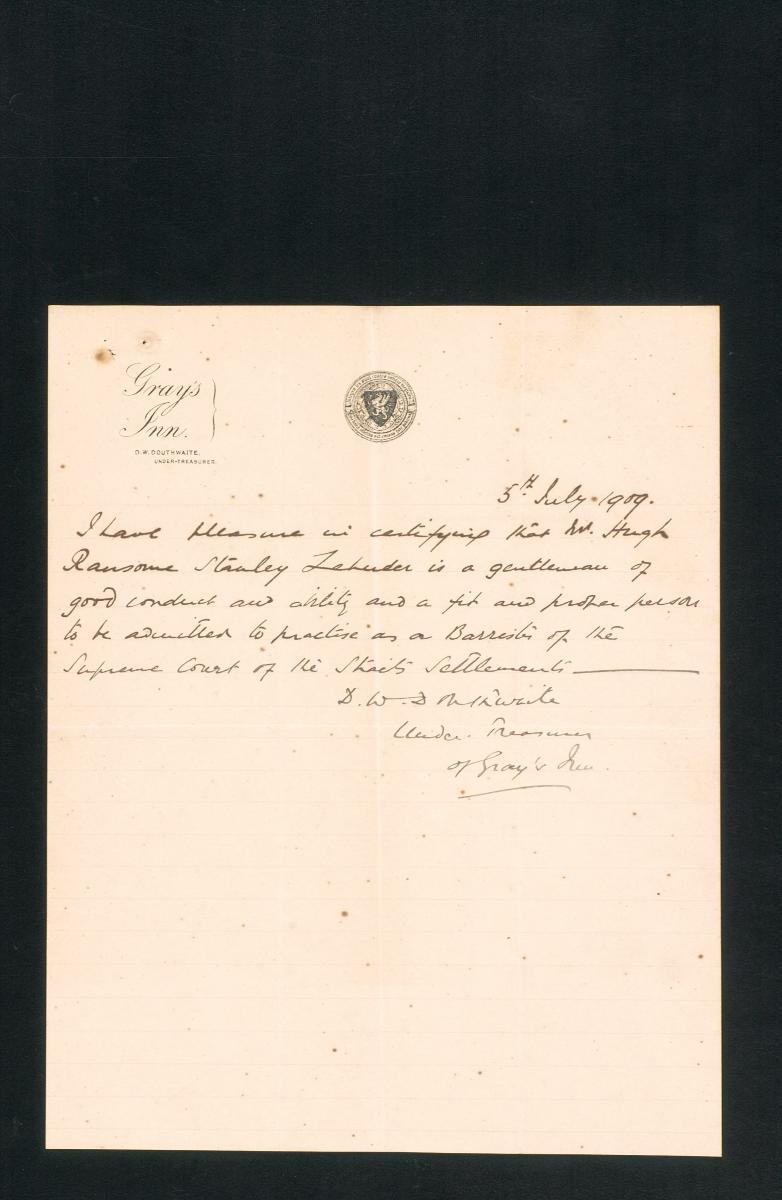 Gray's
Inn.
D. W. DOUTHWAITE,
UNDER-TREASURER.
5th July 1909.
I have pleasure in certifying that Mr. Hugh
Ransome Stanley Zehnder is a gentleman of
good conduct and ability and a fit and proper person
to be admitted to practise as a Barrister of the
Supreme Court of the Straits Settlements
D. W. Douthwaite
Under. Treasurer
of Gray's Inn.